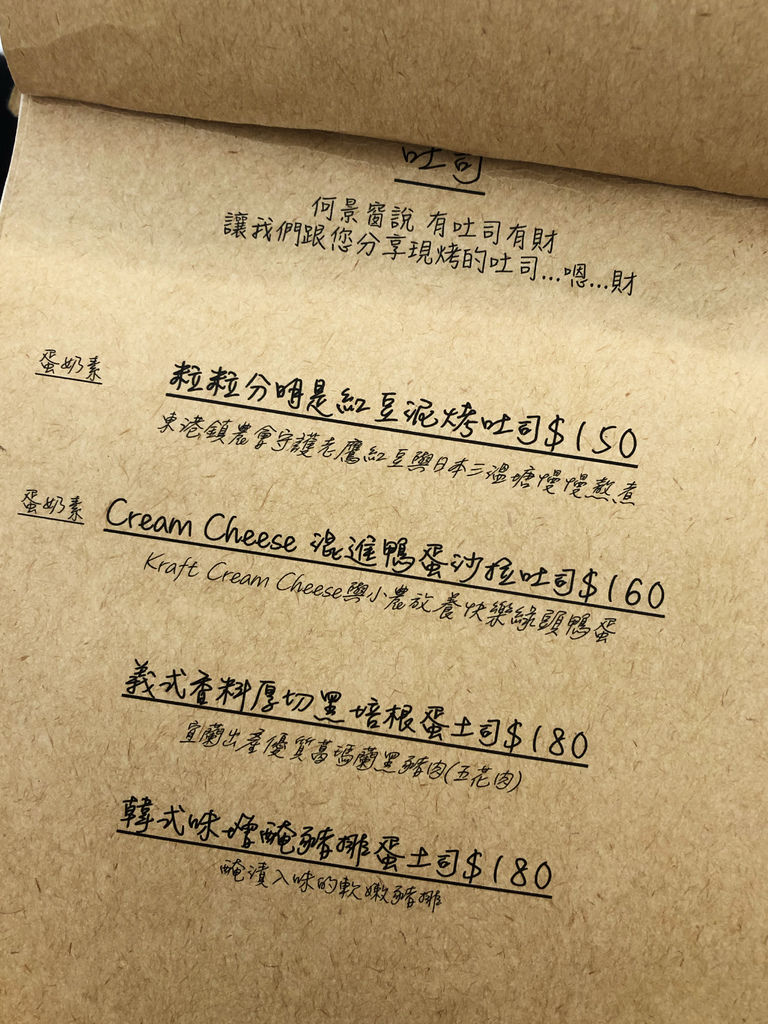 吐司
何景窗說 有吐司有財
讓我們跟您分享現烤的吐司...嗯...財
蛋奶素
粒粒分明是紅豆泥烤吐司$150
東港鎮農會守護老鷹紅豆與日本三溫塘慢慢熬煮
蛋奶素
Cream Cheese 混進鴨蛋沙拉吐司$160
Kraft Cream Cheese與小農放養快樂綠頭鴨蛋
義式香料厚切黑培根蛋土司$180
宜蘭出產優質葛瑪蘭黑豬肉(五花肉)
韓式味噌醃豬排蛋土司$180
醃漬入味的軟嫩豬排